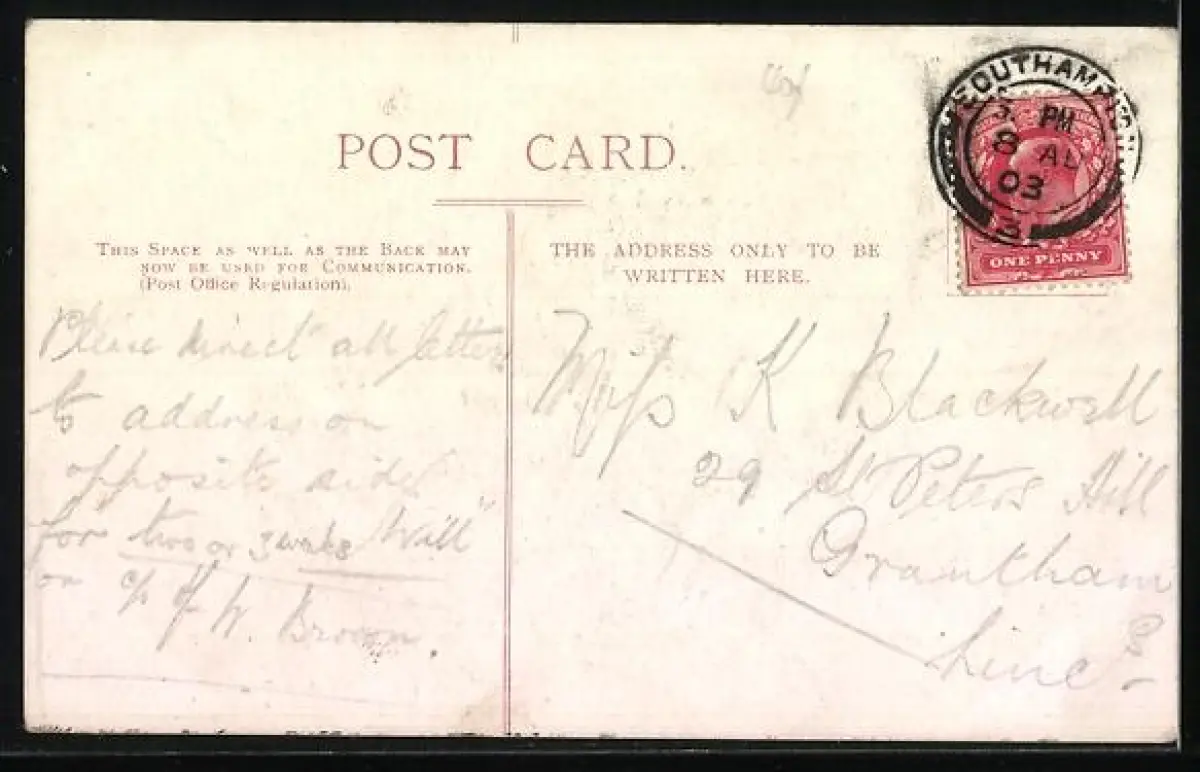 POST CARD.
THIS SPACE AS WELL AS THE BACK MAY
NOW BE USED FOR COMMUNICATION.
(Post Office Regulation).
THE ADDRESS ONLY TO BE
WRITTEN HERE.
SOUTHAMPTON
PM
8 AU
03
3
ONE PENNY
Please direct all letters
to address on
opposite side
for two or 3 weeks "Will"
on c/o W. Brown.
Miss K Blackwell
29 St Peters Hill
Grantham
Linc